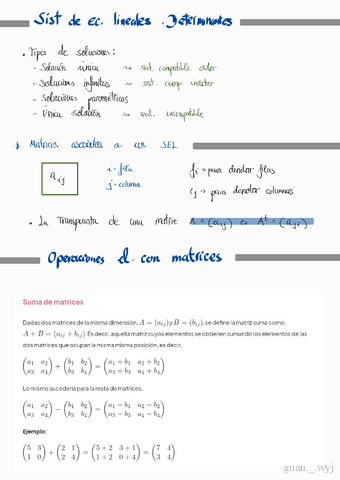 Sist de ec. lineales . Determinantes
• Tipos de soluciones:
- Solución única → sist. compatible deter
- Soluciones infinitas → sist. comp indeter
- Soluciones paramétricas
- Única solución → sist. incompatible
* Matrices asociadas a un SEL
a_ij
i → fila
j → columna
f_i → para denotar filas
c_j → para denotar columnas
• La transpuesta de una matriz A = (a_ij) es A^t = (a_ji)
Operaciones el. con matrices
Suma de matrices
Dadas dos matrices de la misma dimensión, A = (a_ij) y B = (b_ij), se define la matriz suma como:
A + B = (a_ij + b_ij). Es decir, aquella matriz cuyos elementos se obtienen sumando los elementos de las
dos matrices que ocupan la misma misma posición, es decir,
(a_1 a_2 / a_3 a_4) + (b_1 b_2 / b_3 b_4) = (a_1 + b_1 a_2 + b_2 / a_3 + b_3 a_4 + b_4)
Lo mismo sucedería para la resta de matrices.
(a_1 a_2 / a_3 a_4) − (b_1 b_2 / b_3 b_4) = (a_1 − b_1 a_2 − b_2 / a_3 − b_3 a_4 − b_4)
Ejemplo:
(5 3 / 1 0) + (2 1 / 2 4) = (5 + 2 3 + 1 / 1 + 2 0 + 4) = (7 4 / 3 4)
guan._.wyj